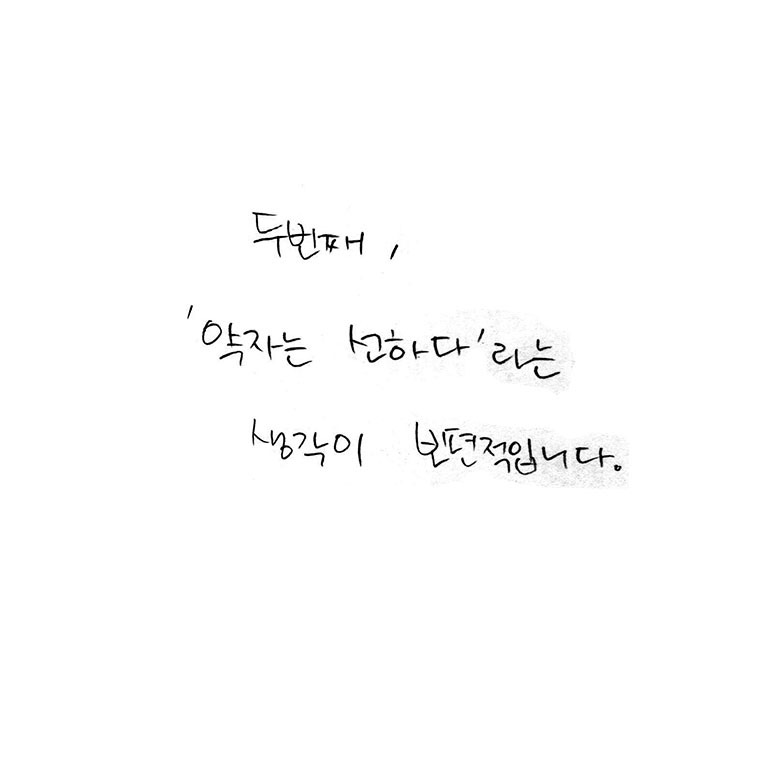 두번째,
'약자는 선하다'라는
생각이 보편적입니다.